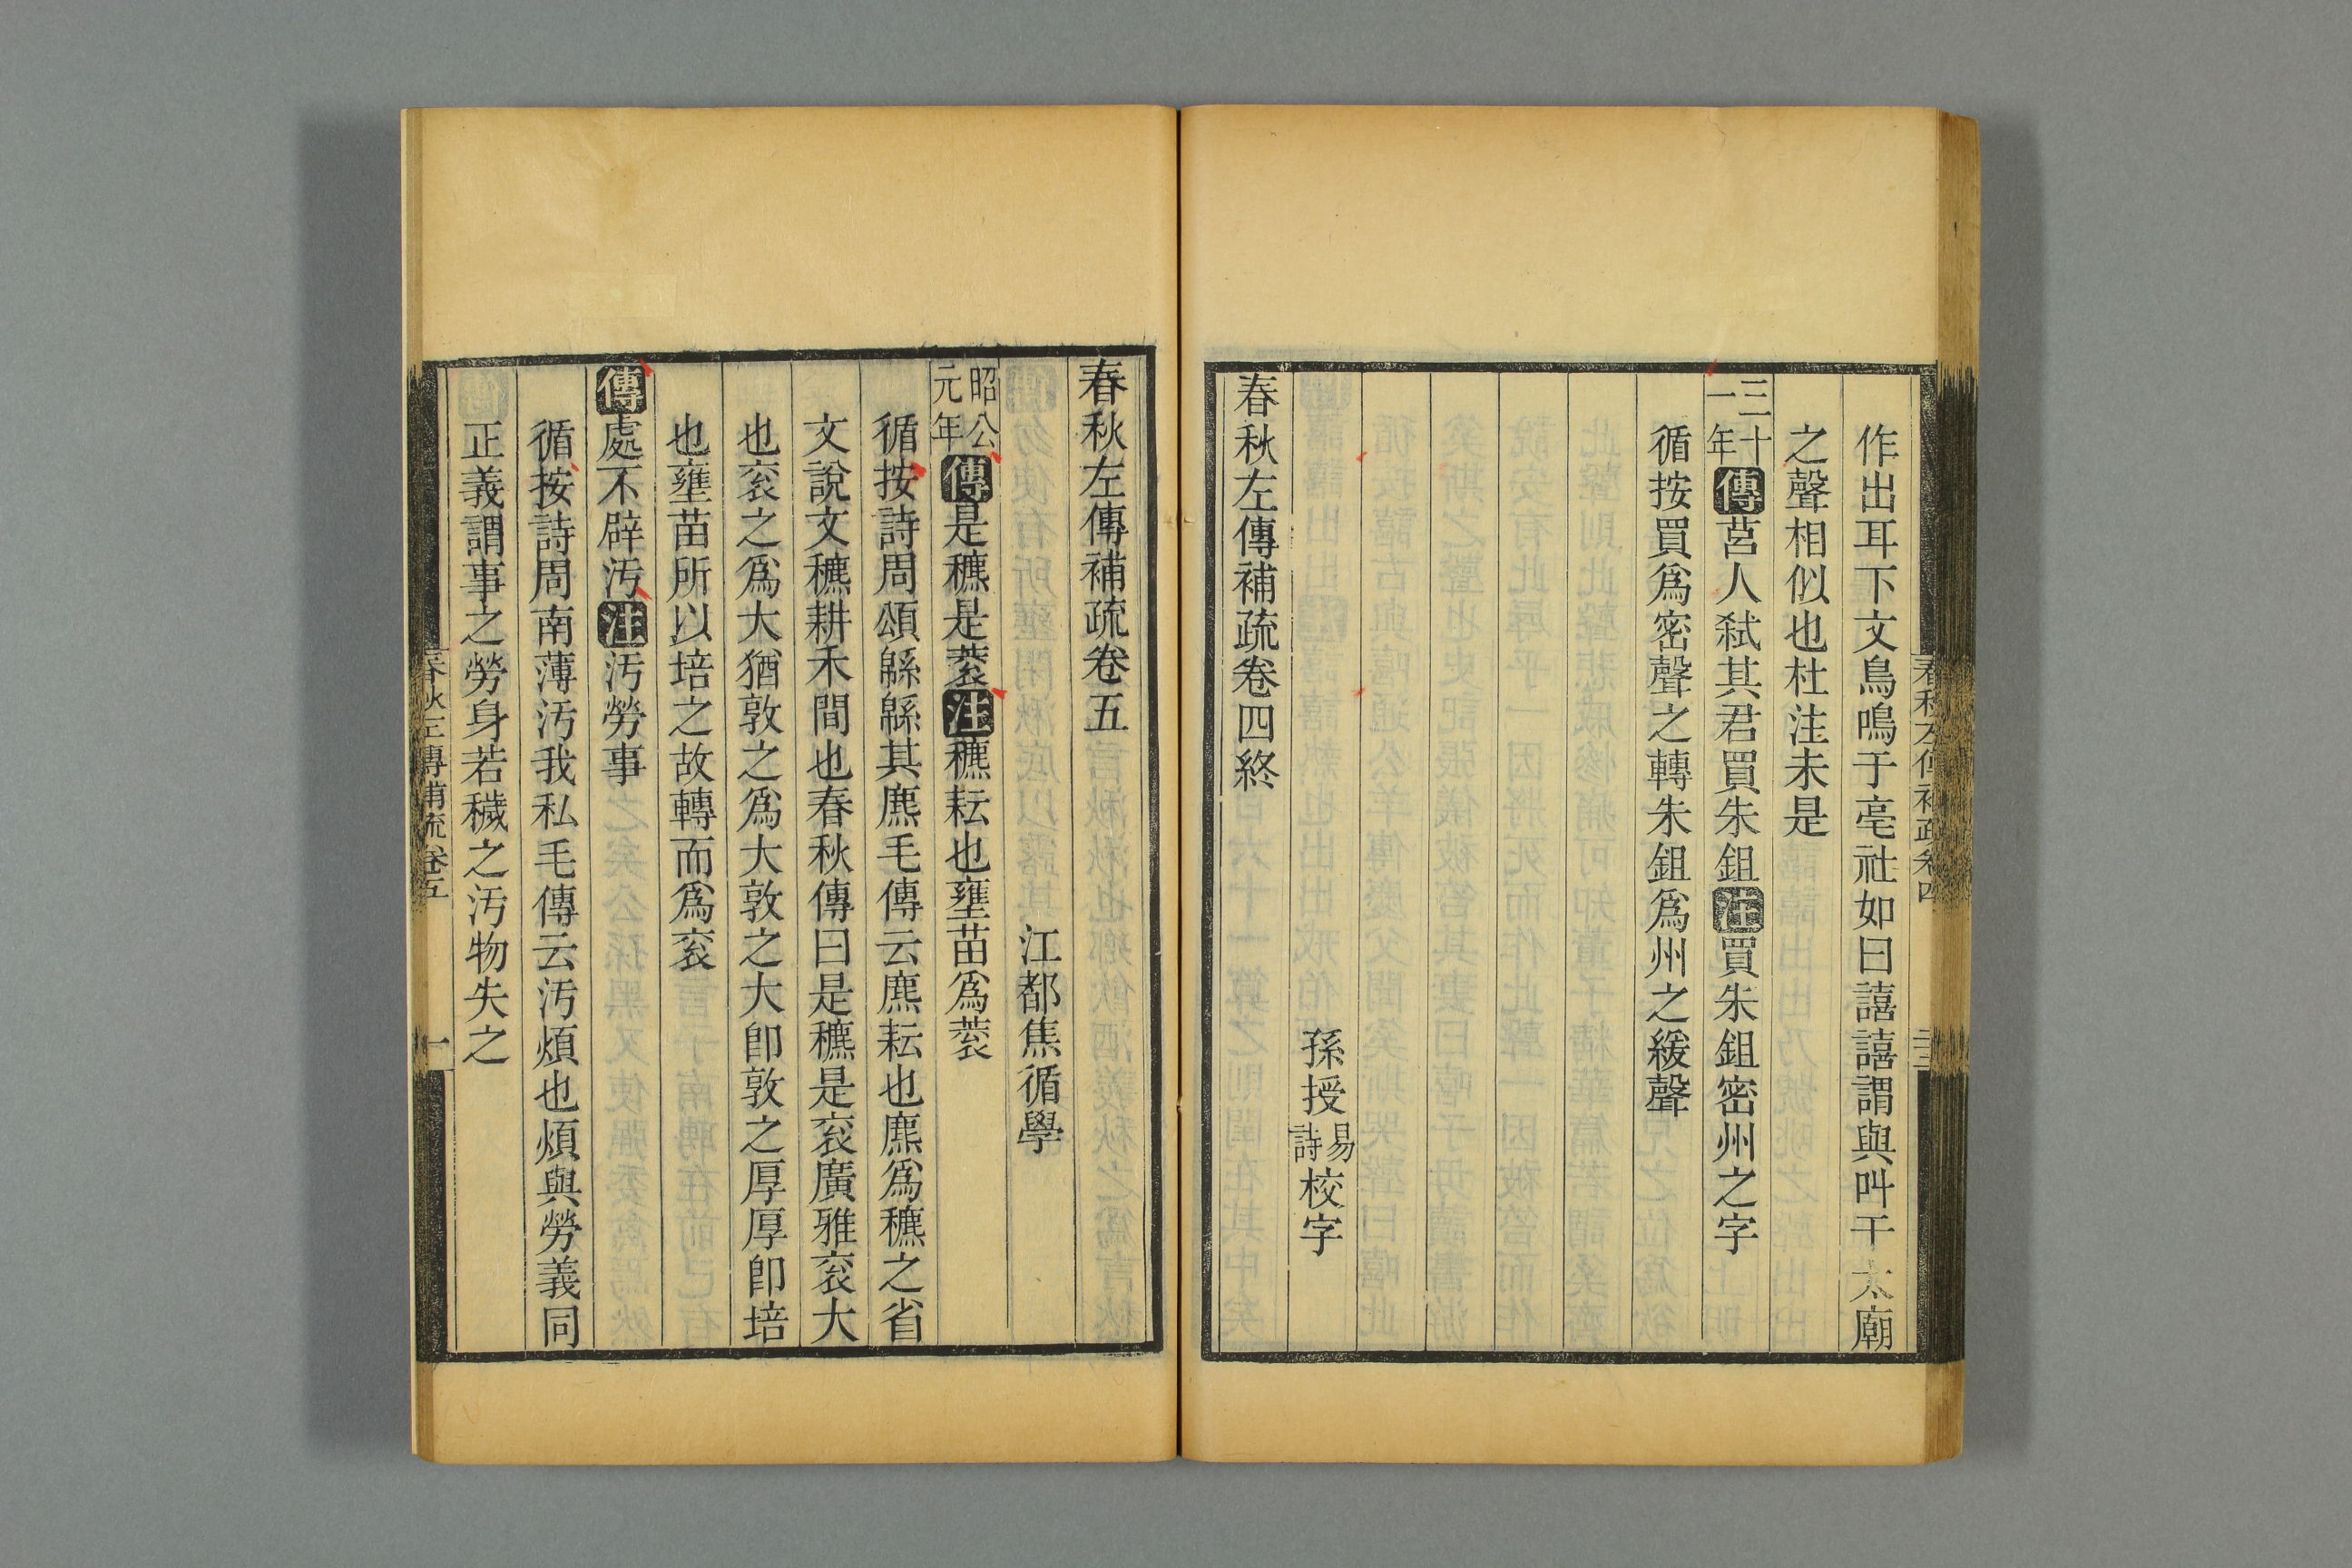 作出耳下文鳥鳴于亳社如曰譆譆謂與叫于太廟
之聲相似也杜注未是
三十一年傳莒人弒其君買朱鉏注買朱鉏密州之字
循按買爲密聲之轉朱鉏爲州之緩聲
孫授易詩校字
春秋左傳補疏卷四終
春秋左傳補疏卷五
江都焦循學
昭公元年傳是穮是蓘注穮耘也壅苗爲蓘
循按詩周頌緜緜其麃毛傳云麃耘也麃爲穮之省
文說文穮耕禾間也春秋傳曰是穮是袞廣雅袞大
也袞之爲大猶敦之爲大敦之大卽敦之厚厚卽培
也壅苗所以培之故轉而爲袞
傳處不辟汚注汚勞事
循按詩周南薄汚我私毛傳云汚煩也煩與勞義同
正義謂事之勞身若穢之汚物失之
春秋左傳補疏卷五
一